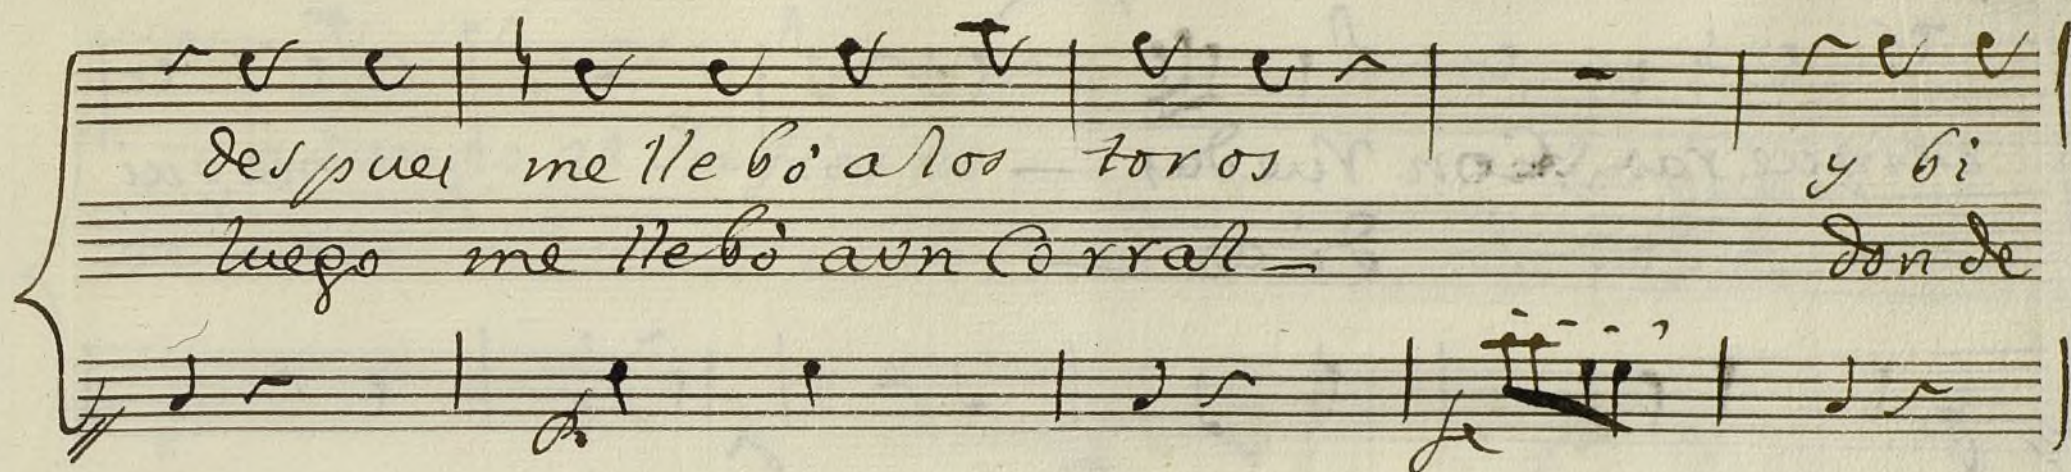 despues me llebò a los toros y bi
luego me llebò a un Corral — donde
p fe